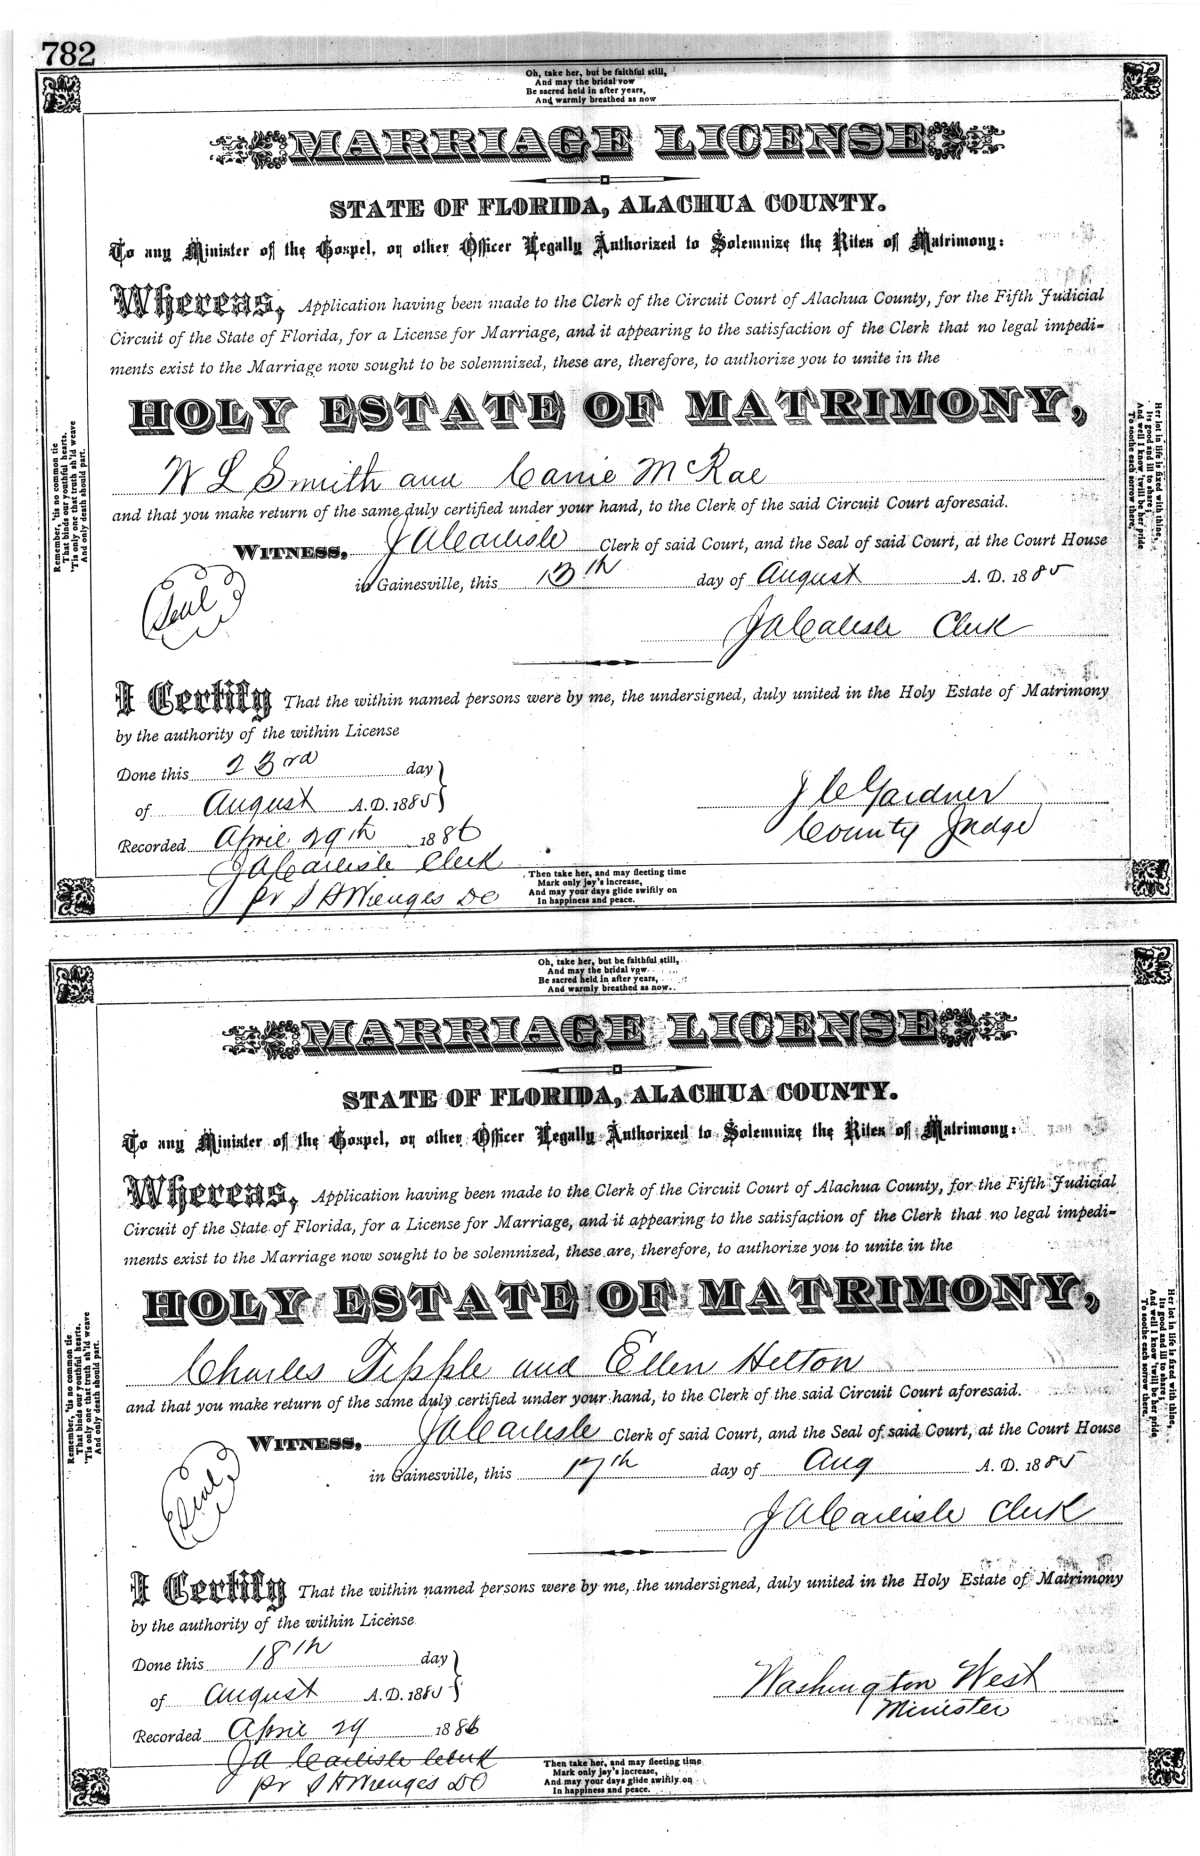 782
Oh, take her, but be faithful still,
And may the bridal vow
Be sacred held in after years,
And warmly breathed as now
MARRIAGE LICENSE
STATE OF FLORIDA, ALACHUA COUNTY.
To any Minister of the Gospel, or other Officer Legally Authorized to Solemnize the Rites of Matrimony:
Whereas, Application having been made to the Clerk of the Circuit Court of Alachua County, for the Fifth Judicial
Circuit of the State of Florida, for a License for Marriage, and it appearing to the satisfaction of the Clerk that no legal impedi-
ments exist to the Marriage now sought to be solemnized, these are, therefore, to authorize you to unite in the
HOLY ESTATE OF MATRIMONY,
W L Smith and Carrie McRae
and that you make return of the same duly certified under your hand, to the Clerk of the said Circuit Court aforesaid.
WITNESS, J A Carlisle Clerk of said Court, and the Seal of said Court, at the Court House
in Gainesville, this 13th day of August A. D. 1885
Seal
J A Carlisle Clerk
I Certify That the within named persons were by me, the undersigned, duly united in the Holy Estate of Matrimony
by the authority of the within License
Done this 23rd day
of August A.D. 1885
J C Gardner
County Judge
Recorded April 29th 1886
J A Carlisle Clerk
pr S H Wienges DC
Remember, 'tis no common tie
That binds our youthful hearts,
'Tis only one that truth sh'ld weave
And only death should part.
Her lot in life is fixed with thine,
Its good and ill to share,
And well I know 'twill be her pride
To soothe each sorrow there,
Then take her, and may fleeting time
Mark only joy's increase,
And may your days glide swiftly on
In happiness and peace.
Oh, take her, but be faithful still,
And may the bridal vow
Be sacred held in after years,
And warmly breathed as now.
MARRIAGE LICENSE
STATE OF FLORIDA, ALACHUA COUNTY.
To any Minister of the Gospel, or other Officer Legally Authorized to Solemnize the Rites of Matrimony:
Whereas, Application having been made to the Clerk of the Circuit Court of Alachua County, for the Fifth Judicial
Circuit of the State of Florida, for a License for Marriage, and it appearing to the satisfaction of the Clerk that no legal impedi-
ments exist to the Marriage now sought to be solemnized, these are, therefore, to authorize you to unite in the
HOLY ESTATE OF MATRIMONY,
Charles Tipple and Ellen Helton
and that you make return of the same duly certified under your hand, to the Clerk of the said Circuit Court aforesaid.
WITNESS, J A Carlisle Clerk of said Court, and the Seal of said Court, at the Court House
in Gainesville, this 17th day of Aug A. D. 1885
Seal
J A Carlisle Clerk
I Certify That the within named persons were by me, the undersigned, duly united in the Holy Estate of Matrimony
by the authority of the within License
Done this 18th day
of August A.D. 1885
Washington West
Minister
Recorded April 29 1886
J A Carlisle Clerk
pr S H Wienges DC
Remember, 'tis no common tie
That binds our youthful hearts,
'Tis only one that truth sh'ld weave
And only death should part.
Her lot in life is fixed with thine,
Its good and ill to share,
And well I know 'twill be her pride
To soothe each sorrow there.
Then take her, and may fleeting time
Mark only joy's increase,
And may your days glide swiftly on
In happiness and peace.